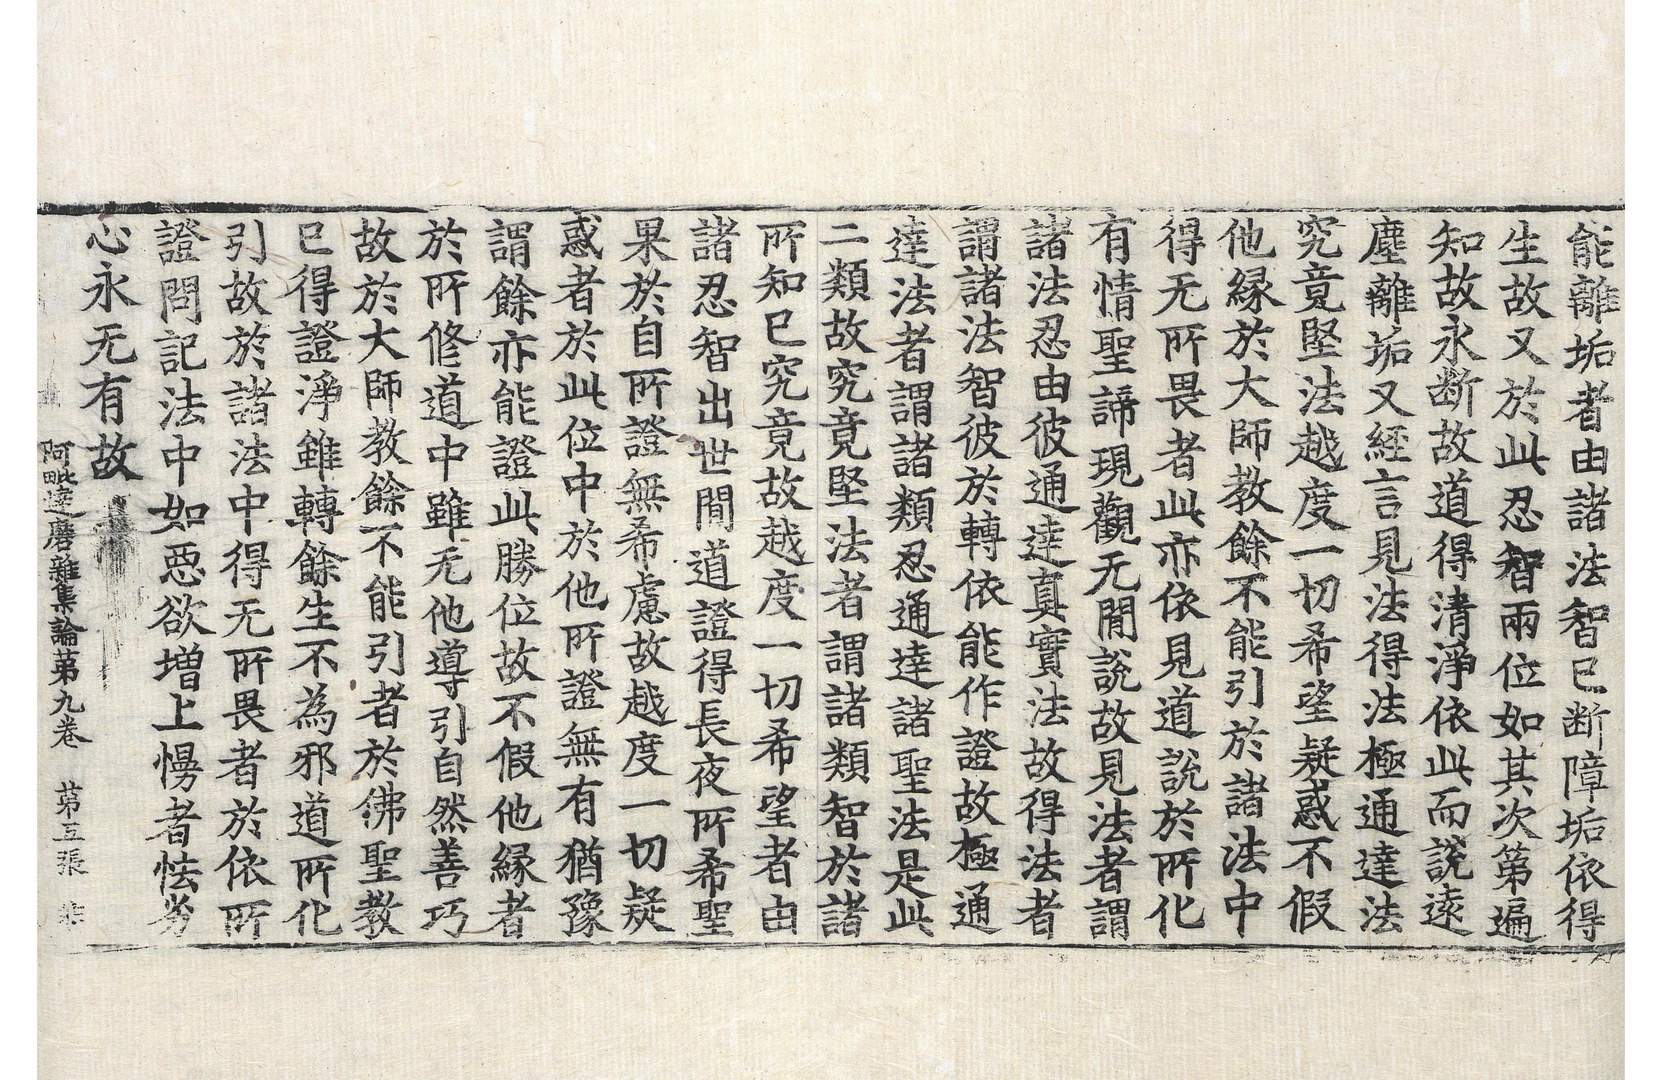 能離垢者由諸法智已断障垢依得
生故又於此忍智兩位如其次第遍
知故永断故道得清淨依此而說遠
塵離垢又經言見法得法極通達法
究竟堅法越度一切希望疑惑不假
他緣於大師教餘不能引於諸法中
得无所畏者此亦依見道說於所化
有情聖諦現觀无閒說故見法者謂
諸法忍由彼通達真實法故得法者
謂諸法智彼於轉依能作證故極通
達法者謂諸類忍通達諸聖法是此
二類故究竟堅法者謂諸類智於諸
所知已究竟故越度一切希望者由
諸忍智出世閒道證得長夜所希聖
果於自所證無希慮故越度一切疑
惑者於此位中於他所證無有猶豫
謂餘亦能證此勝位故不假他緣者
於所修道中雖无他導引自然善巧
故於大師教餘不能引者於佛聖教
已得證淨雖轉餘生不為邪道所化
引故於諸法中得无所畏者於依所
證問記法中如惡欲增上慢者怯劣
心永无有故
阿毗達磨雜集論第九卷 第五張